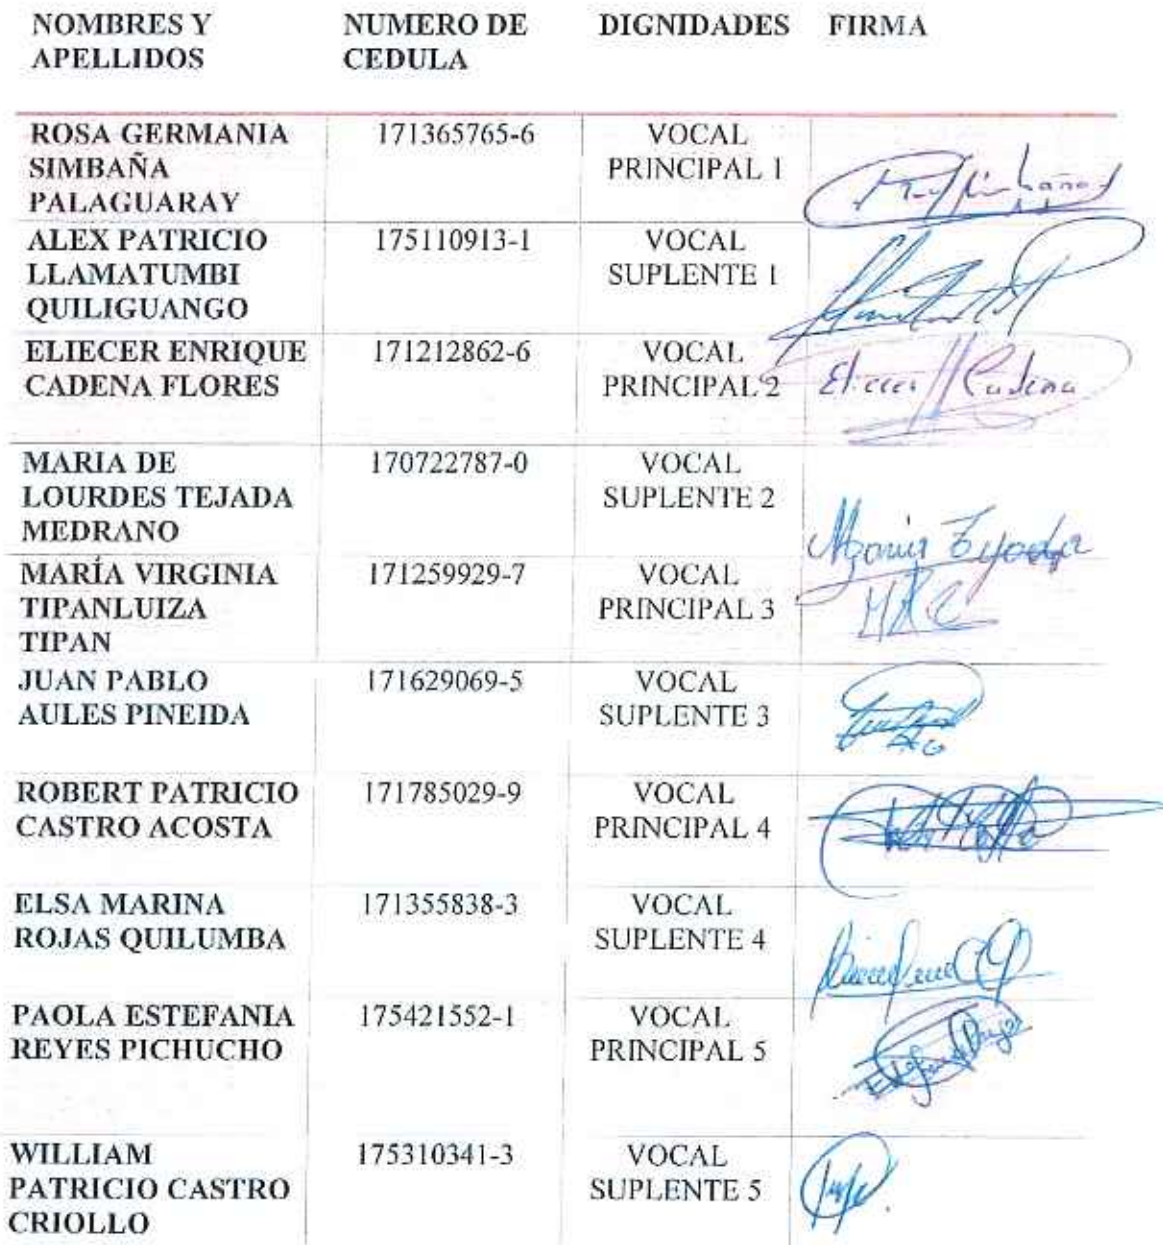 NOMBRES Y APELLIDOS NUMERO DE CEDULA DIGNIDADES FIRMA
ROSA GERMANIA SIMBAÑA PALAGUARAY 171365765-6 VOCAL PRINCIPAL 1
ALEX PATRICIO LLAMATUMBI QUILIGUANGO 175110913-1 VOCAL SUPLENTE 1
ELIECER ENRIQUE CADENA FLORES 171212862-6 VOCAL PRINCIPAL 2 Eliecer Cadena
MARIA DE LOURDES TEJADA MEDRANO 170722787-0 VOCAL SUPLENTE 2 Maria Tejada
MARÍA VIRGINIA TIPANLUIZA TIPAN 171259929-7 VOCAL PRINCIPAL 3
JUAN PABLO AULES PINEIDA 171629069-5 VOCAL SUPLENTE 3
ROBERT PATRICIO CASTRO ACOSTA 171785029-9 VOCAL PRINCIPAL 4
ELSA MARINA ROJAS QUILUMBA 171355838-3 VOCAL SUPLENTE 4
PAOLA ESTEFANIA REYES PICHUCHO 175421552-1 VOCAL PRINCIPAL 5
WILLIAM PATRICIO CASTRO CRIOLLO 175310341-3 VOCAL SUPLENTE 5